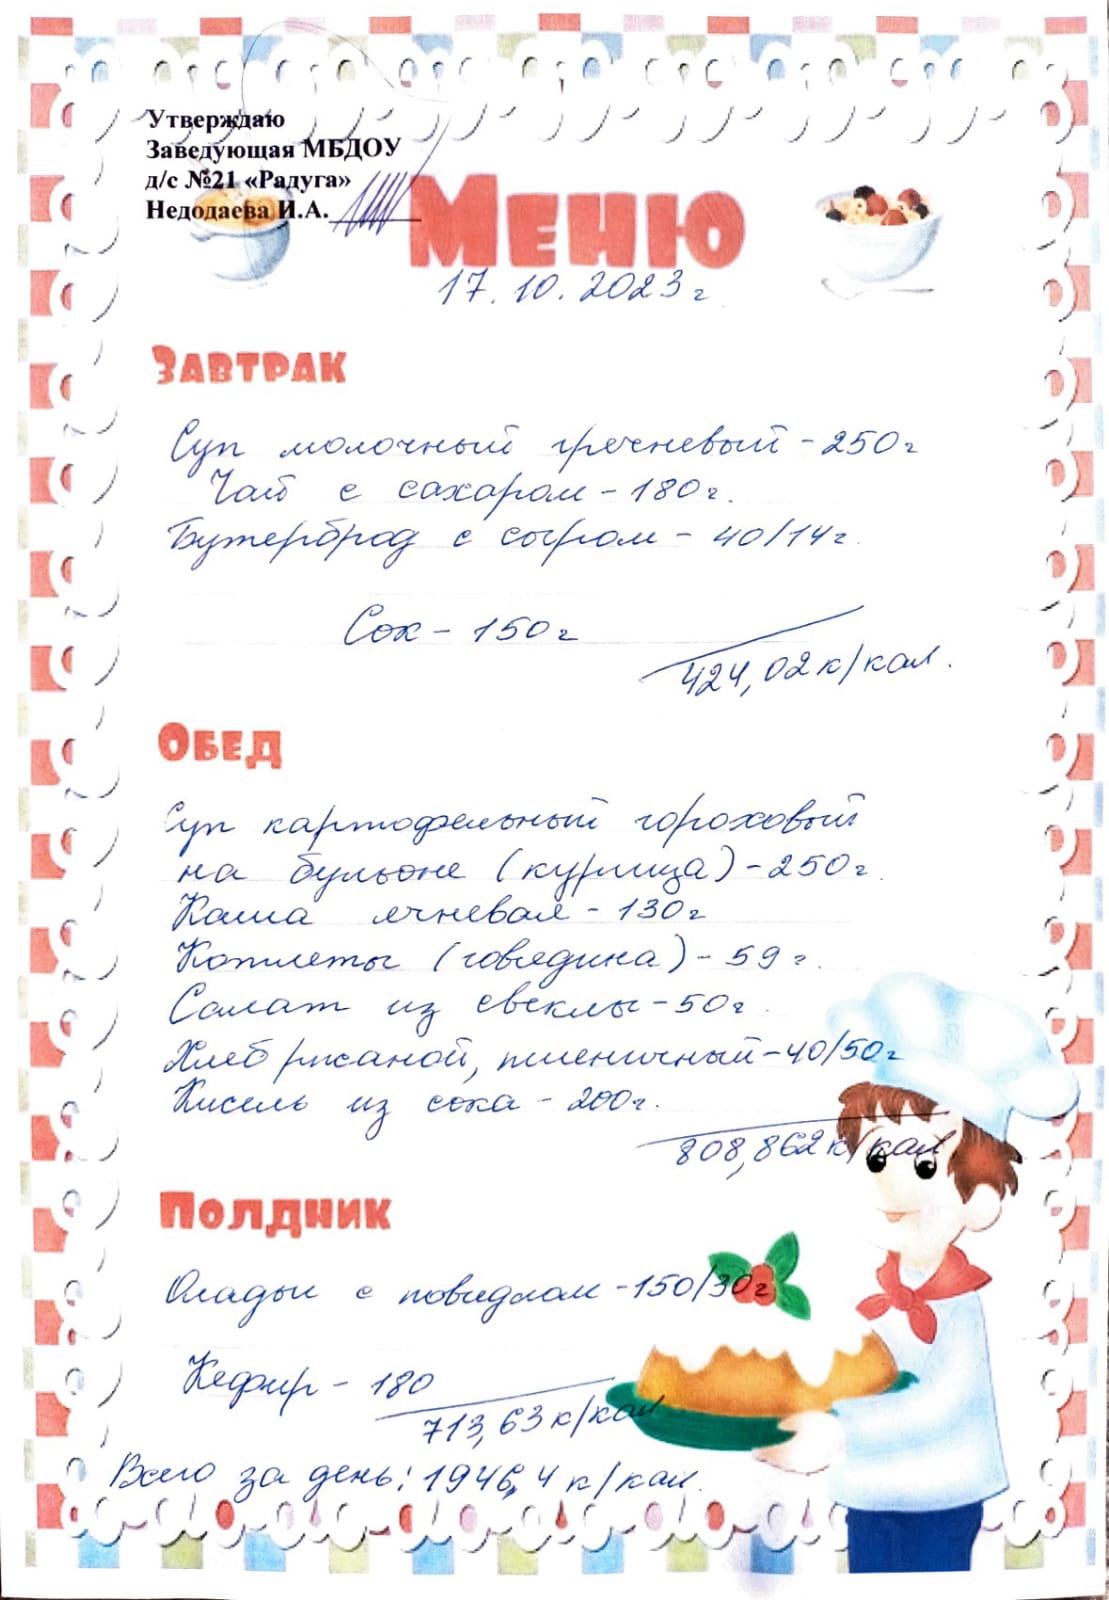 Утверждаю
Заведующая МБДОУ
д/с №21 «Радуга»
Недодаева И.А.
Меню
17.10.2023г
Завтрак
Суп молочный гречневый - 250г
Чай с сахаром - 180г.
Бутерброд с сыром - 40/14г.
Сок - 150г
424,02 к/кал.
Обед
Суп картофельный гороховый
на бульоне (курица) - 250г.
Каша ячневая - 130г
Котлеты (говядина) - 59г.
Салат из свеклы - 50г.
Хлеб ржаной, пшеничный - 40/50г
Кисель из сока - 200г.
808,862 к/кал
Полдник
Оладьи с повидлом - 150/30г
Кефир - 180
713,63 к/кал
Всего за день: 1946,4 к/кал.